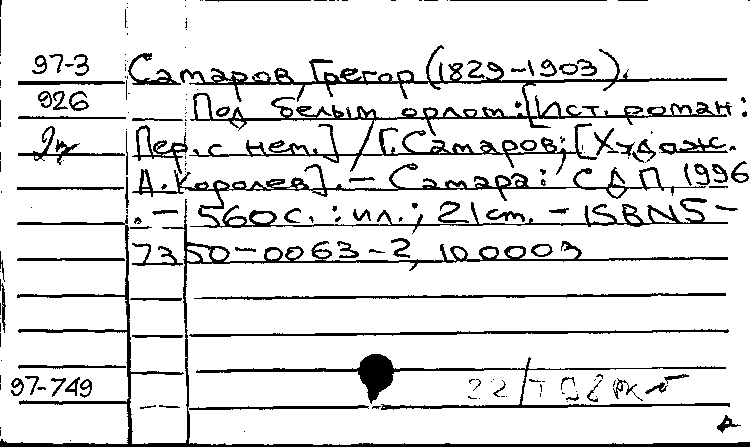 97-3 Самаров Грегор (1829-1903).
926 Под белым орлом: [Ист. роман:
Пер. с нем.] / Г. Самаров; [Худож.
А. Королев]. — Самара: СДП, 1996
. — 560 с. : ил.; 21 см. — ISBN 5-
7350-0063-2, 10000э
97-749